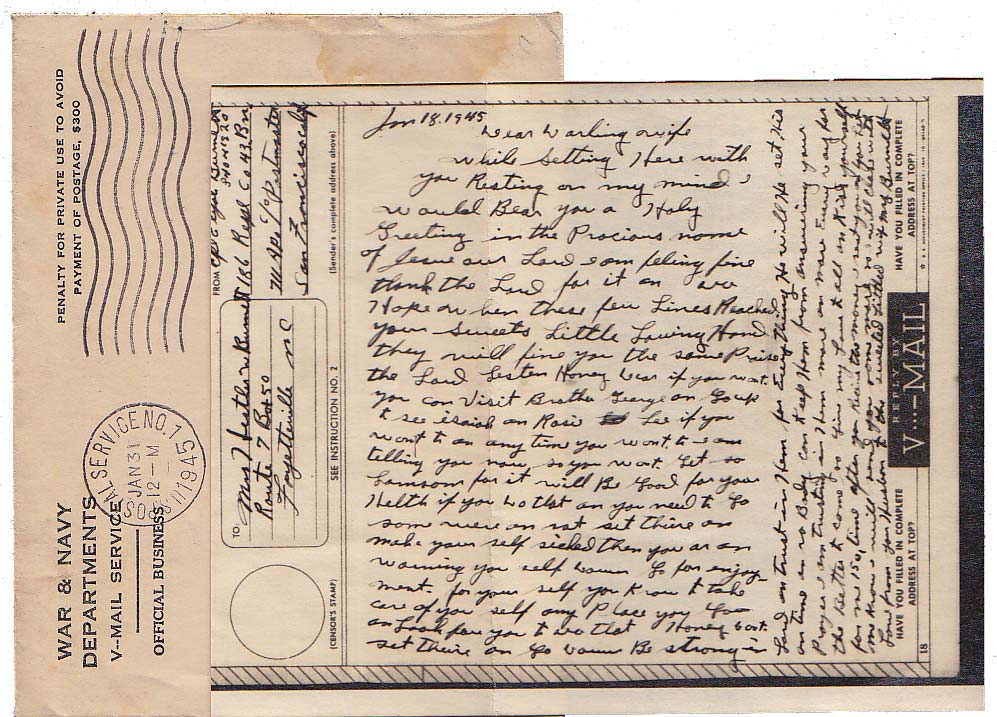 PENALTY FOR PRIVATE USE TO AVOID
PAYMENT OF POSTAGE, $300
WAR & NAVY
DEPARTMENTS
V--MAIL SERVICE
OFFICIAL BUSINESS
POSTAL SERVICE NO. 1
JAN 31
12 - M
1945
FROM
c/o Postmaster
San Francisco Calif
(Sender's complete address above)
TO
Route 7 Box 50
Fayetteville N C
SEE INSTRUCTION NO. 2
(CENSOR'S STAMP)
Jan 18, 1945
Dear Darling wife
while Setting Here with
you Resting on my mind
would Bear you a Holy
Greeting in the Procious name
of Jesus our Lord I am feling fine
thank the Lord for it an
Hope when these few Lines Reached
your Sweets Little Loving Hand
they will fine you the same Praise
the Lord Listen Honey Dear if you want
you can Visit Brother George an Go up
to see isaiah an Rosie Lee if you
wont to an any time you wont to I am
telling you now, so you wont Get so
Lonsom for it will Be Good for your
Helth if you do that an you need to Go
som were an not set there an
make your self sicked then you ar an
warning you self down Go for enjoy-
ment. for your self you know to take
care of you self any Place you Goo
an Look for you to do that Honey dont
set there an Go down Be strong in
Lord an trust in Him for Everything He will He set His
on time an no Body can keep Him from answering your
Prayer I am trusting in Him more an more Every day for
the Better to come so Give my Love to all an Kiss yourself
for me 150, time after you Receive the money
Love from your Husban to the sweetes Little wife
HAVE YOU FILLED IN COMPLETE
ADDRESS AT TOP?
REPLY BY
V···—MAIL
HAVE YOU FILLED IN COMPLETE
ADDRESS AT TOP?
18